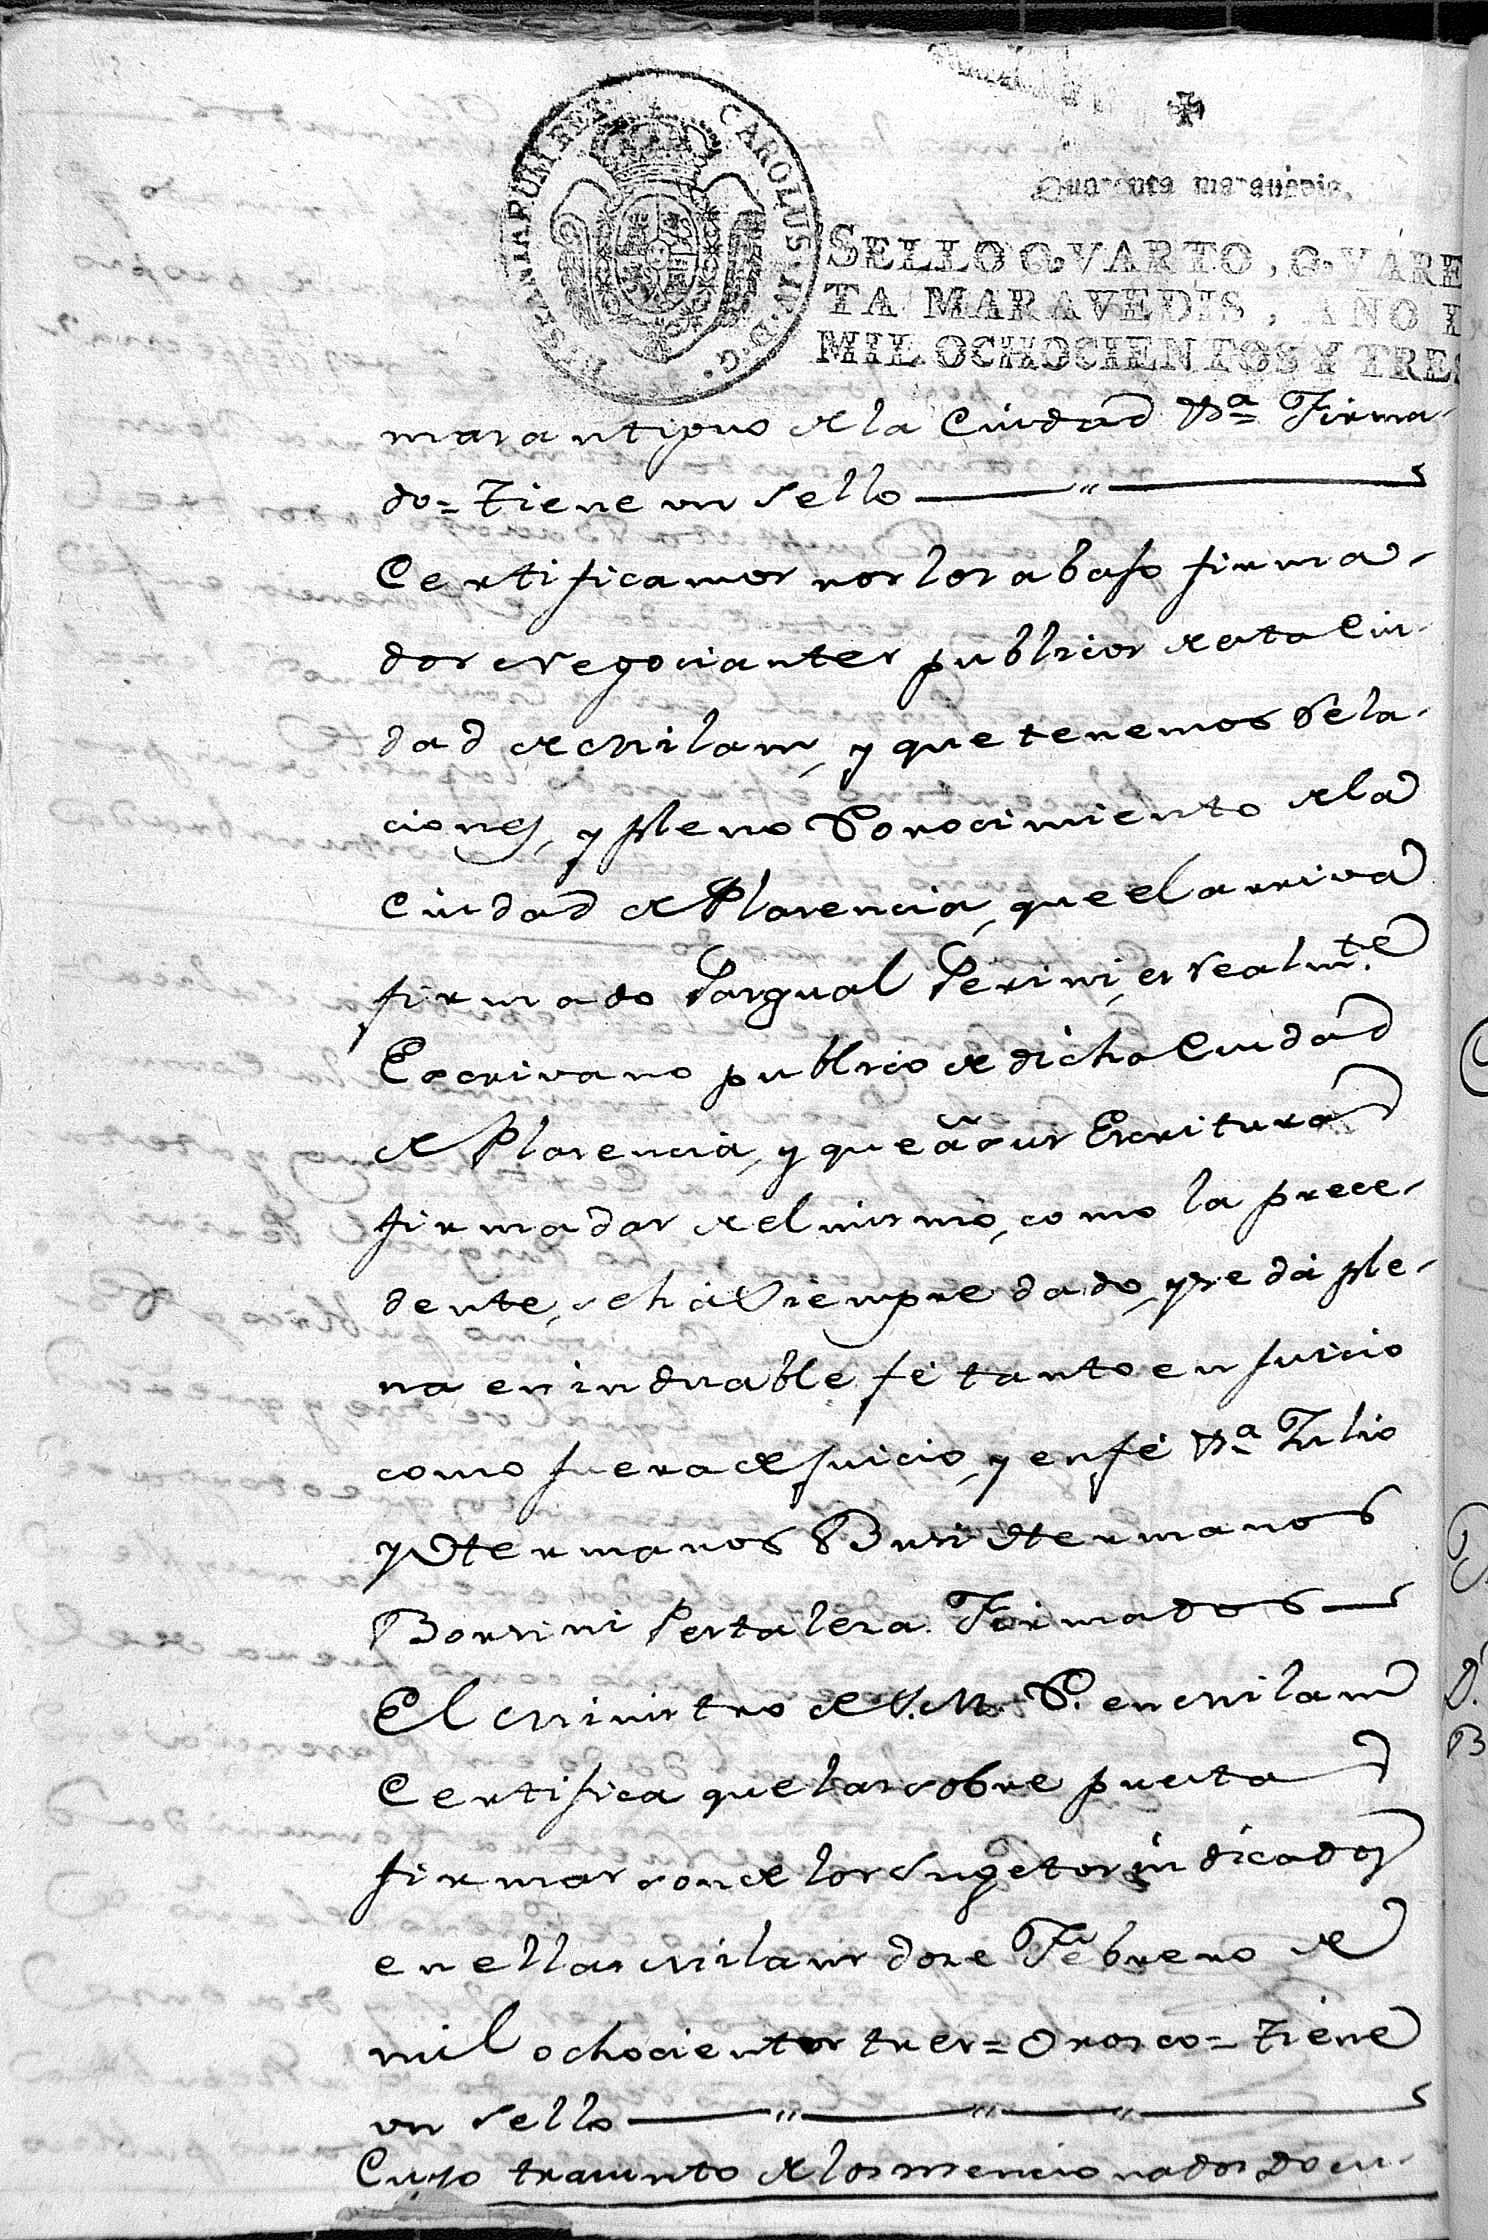 HISPANIARUM REX. CAROLUS. IV. D. G.
Quarenta maravedis.
SELLO QVARTO, QVARE
TA MARAVEDIS, AÑO D
MIL OCHOCIENTOS Y TRES
mas antiguo de la Ciudad Firma-
do = Tiene un Sello
Certificamos nos los abaso firma-
dos Negociantes publicos de esta Ciu-
dad de Milan, y que tenemos Rela-
ciones, y pleno Conocimiento de la
Ciudad de Plasencia, que el arriva
firmado Pasqual Perini, es Realmte.
Escrivano publico de dicha Ciudad
de Plasencia, y que â sus Escrituras
firmadas del mismo, como la prece-
dente, se há Siempre dado, y se dá ple-
na e indvable fé tanto en Juicio
como fuera de Juicio, y en fé Julio
y Hermanos Busi Hermanos
Borsini Pestaleza. Firmados
El Ministro de S. M. C. en Milan
Certifica que las sobre puestas
firmas son de los Sugetos indicados
en ellas Milan doze Febrero de
mil ochocientos tres = Orosco = Tiene
un Sello
Cuyo trasunto de los mencionados Docu-